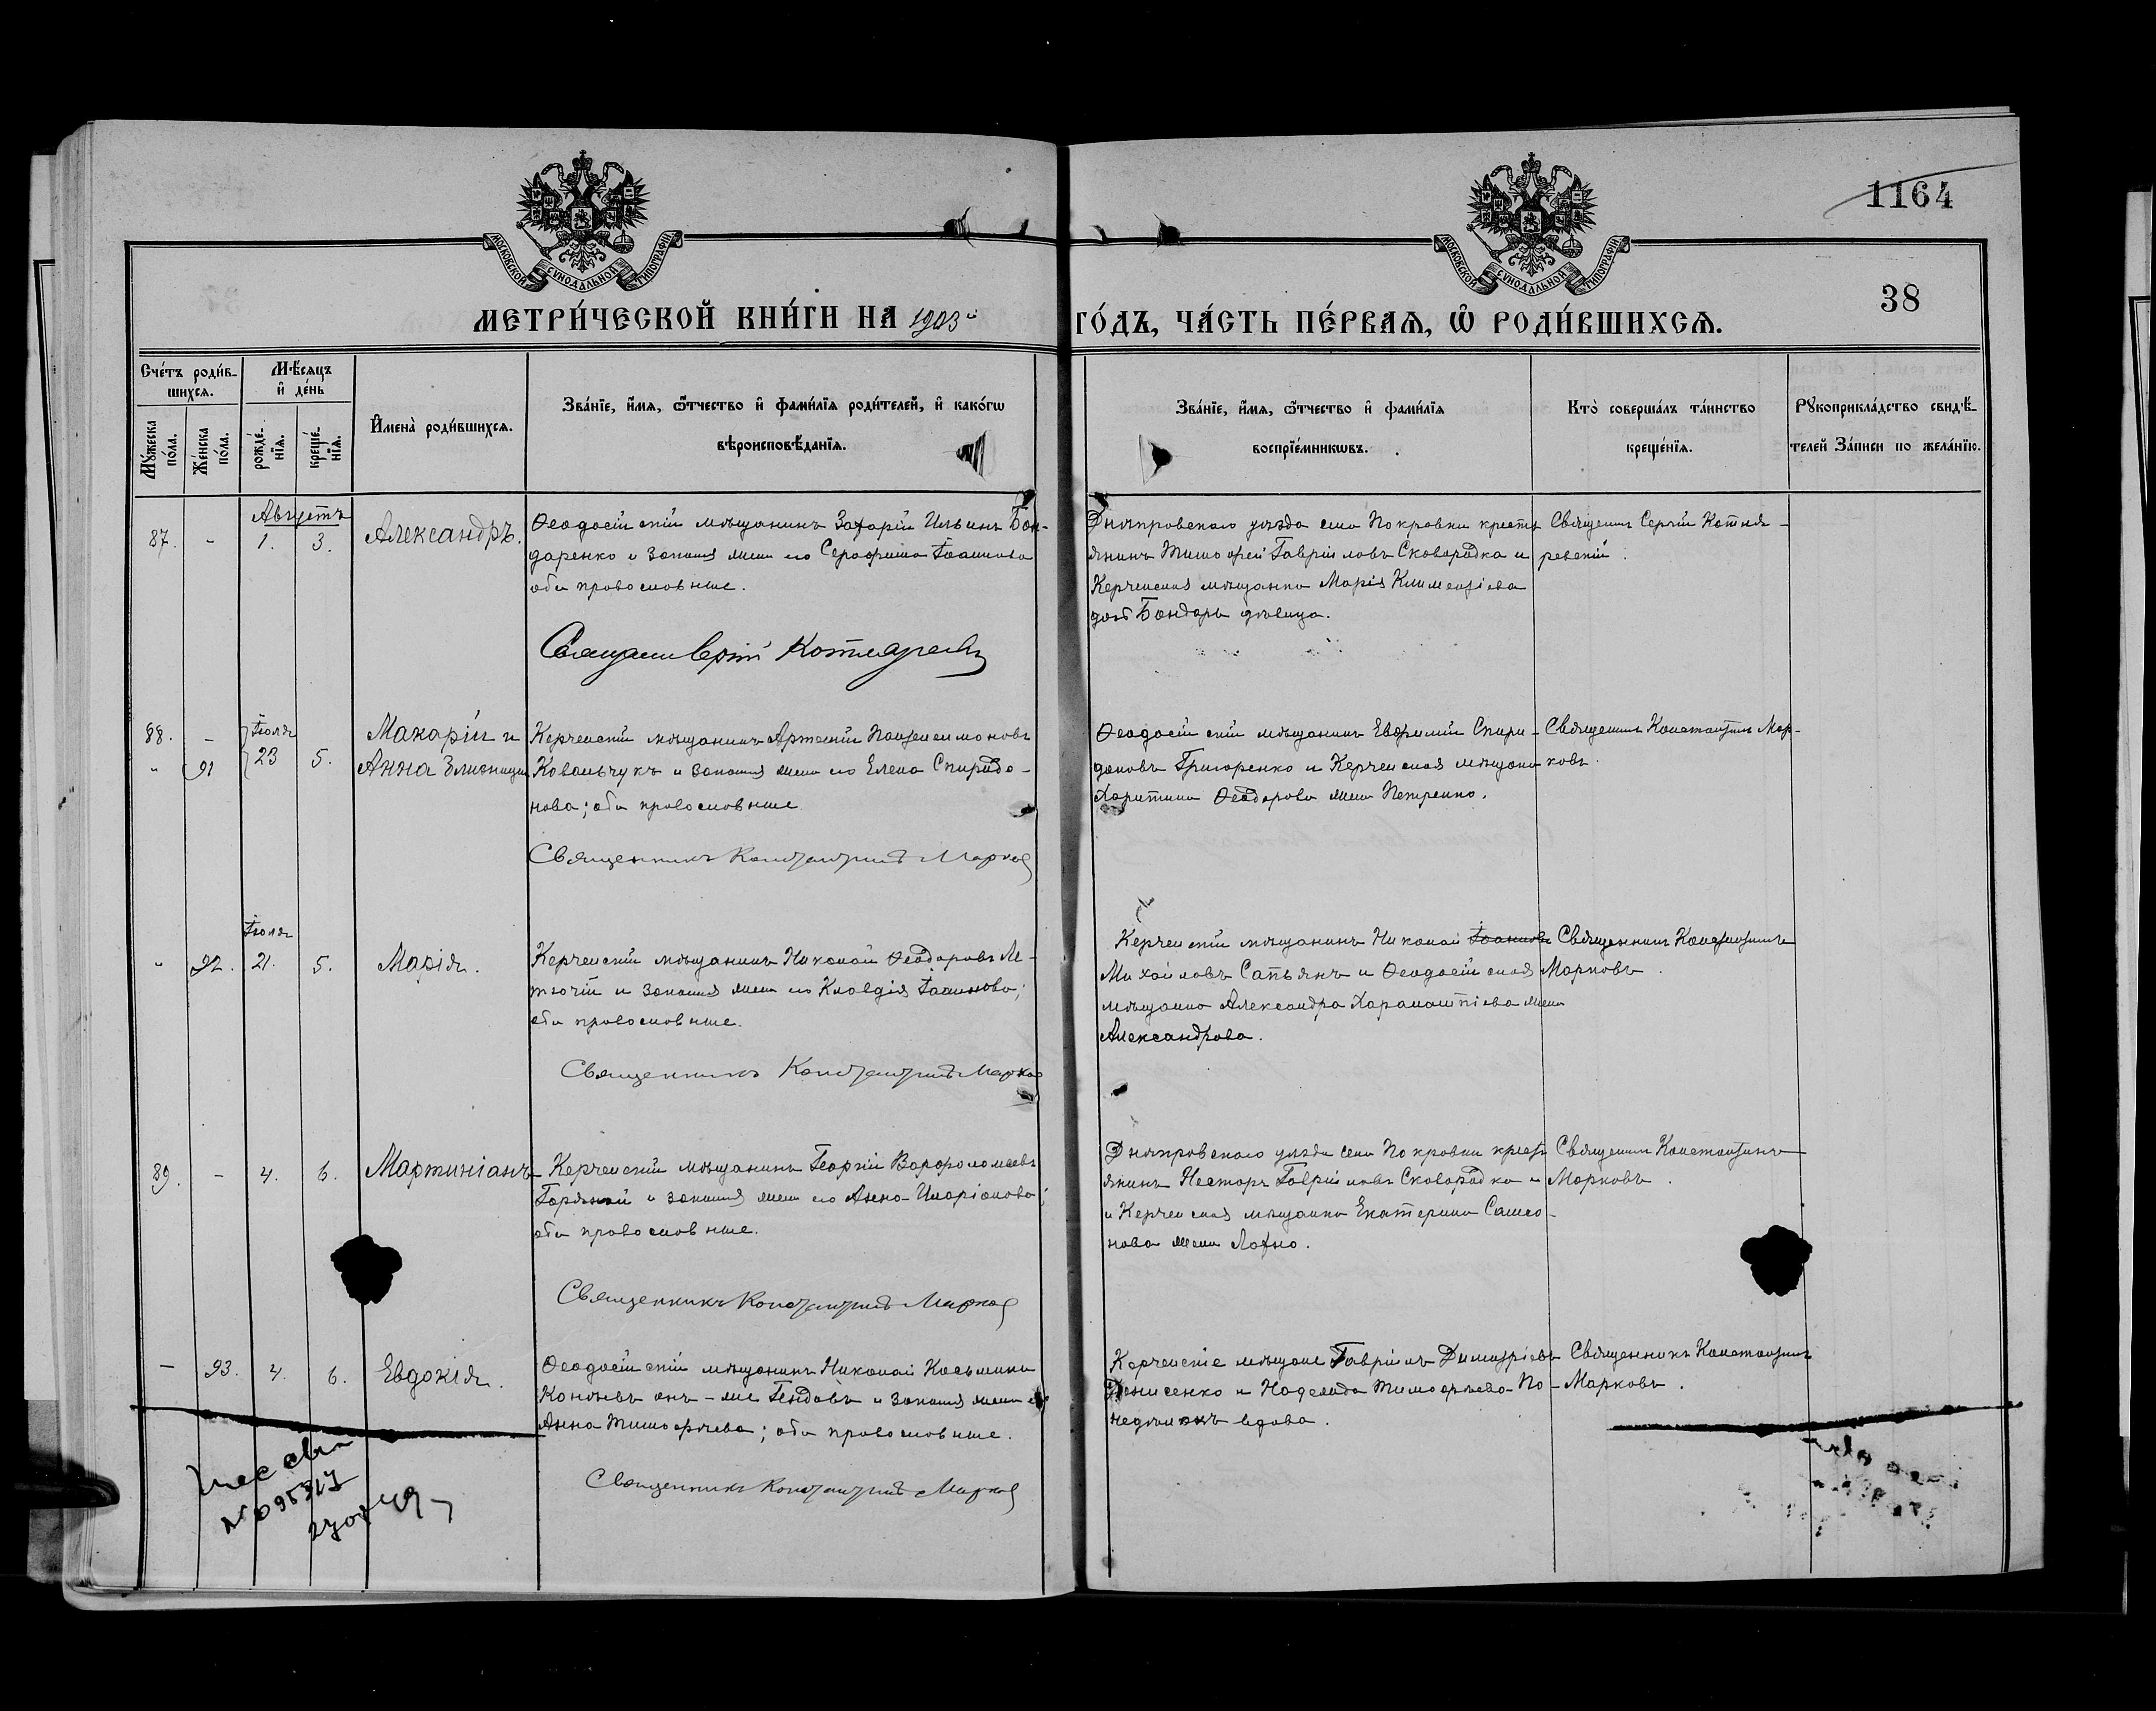 МОСКОВСКОЙ СѴНОДАЛЬНОЙ ТИПОГРАФІИ
МОСКОВСКОЙ СѴНОДАЛЬНОЙ ТИПОГРАФІИ
1164
38
МЕТРИ́ЧЕСКОЙ КНИ́ГИ НА 1903й ГО́ДЪ, ЧА́СТЬ ПЕ́РВАѦ, Ѡ҆ РОДИ́ВШИХСѦ.
Сче́тъ роди́в-
шихсѧ.
Мѣ́сѧцъ
и҆ де́нь
Мꙋ́жеска по́ла.
Же́нска по́ла.
рожде́-нїѧ.
креще́-нїѧ.
И҆мена̀ роди́вшихсѧ.
Зва́нїе, и҆́мѧ, ѻ҆́тчество и҆ фами́лїѧ роди́телей, и҆ како́гѡ
вѣроисповѣ́данїѧ.
Зва́нїе, и҆́мѧ, ѻ҆́тчество и҆ фами́лїѧ
воспрїе́мникѡвъ.
Кто̀ соверша́лъ та́инство
креще́нїѧ.
Рꙋкоприкла́дство свидѣ́-
телей за́писи по жела́нїю.
Августъ
87. - 1. 3. Александръ.
Ѳеодосійскій мѣщанинъ Захарій Ильинъ Бон-
даренко и законная жена его Серафима Іоаннова
оба православные.
Священ. Сергій Котляревскій
Днѣпровскаго уѣзда села Покровки кресть
янинъ Тимофей Гавріиловъ Сковородка и
Керченская мѣщанка Марія Климентіева
доч Бондарь дѣвица.
Священникъ Сергій Котля-
ревскій.
88. - Іюля 23 5. Макарій и
" 91 Анна близнецы
Керченскій мѣщанинъ Артемій Пантелеимоновъ
Ковальчукъ и законная жена его Елена Спиридо-
нова; оба православные
Священникъ Константинъ Марковъ
Ѳеодосійскій мѣщанинъ Евфимій Спири-
доновъ Григоренко и Керченская мѣщанка
Харитина Ѳеодорова жена Петренко.
Священникъ Константинъ Мар-
ковъ.
Іюля
" 92. 21. 5. Марія.
Керченскій мѣщанинъ Николай Ѳеодоровъ Ле-
тючій и законная жена его Клавдія Іоаннова;
оба православные.
Священникъ Константинъ Марков
Керченскій мѣщанинъ Николай Іоанновъ
Михайловъ Сапьянъ и Ѳеодосійская
мѣщанка Александра Харалампіева жена
Александрова.
Священникъ Константинъ
Марковъ.
89. - 4. 6. Мартиніанъ
Керченскій мѣщанинъ Георгій Варфоломеевъ
Горяной и законная жена его Анна Иларіонова;
оба православные.
Священникъ Константинъ Марков
Днѣпровскаго уѣзда села Покровки кресть
янинъ Несторъ Гавріиловъ Сковородка и
и Керченская мѣщанка Екатерина Самсо-
нова жена Лахно.
Священникъ Константинъ
Марковъ.
- 93. 4. 6. Евдокія.
Ѳеодосійскій мѣщанинъ Николай Косьминъ
Коневъ онъ-же и законная жена его
Анна Тимофѣева; оба православные.
Священникъ Константинъ Марков
Керченскіе мѣщане Гавріилъ Димитріевъ
Денисенко и Надежда Тимофѣева По-
недѣлокъ вдова.
Священникъ Константинъ
Марковъ.